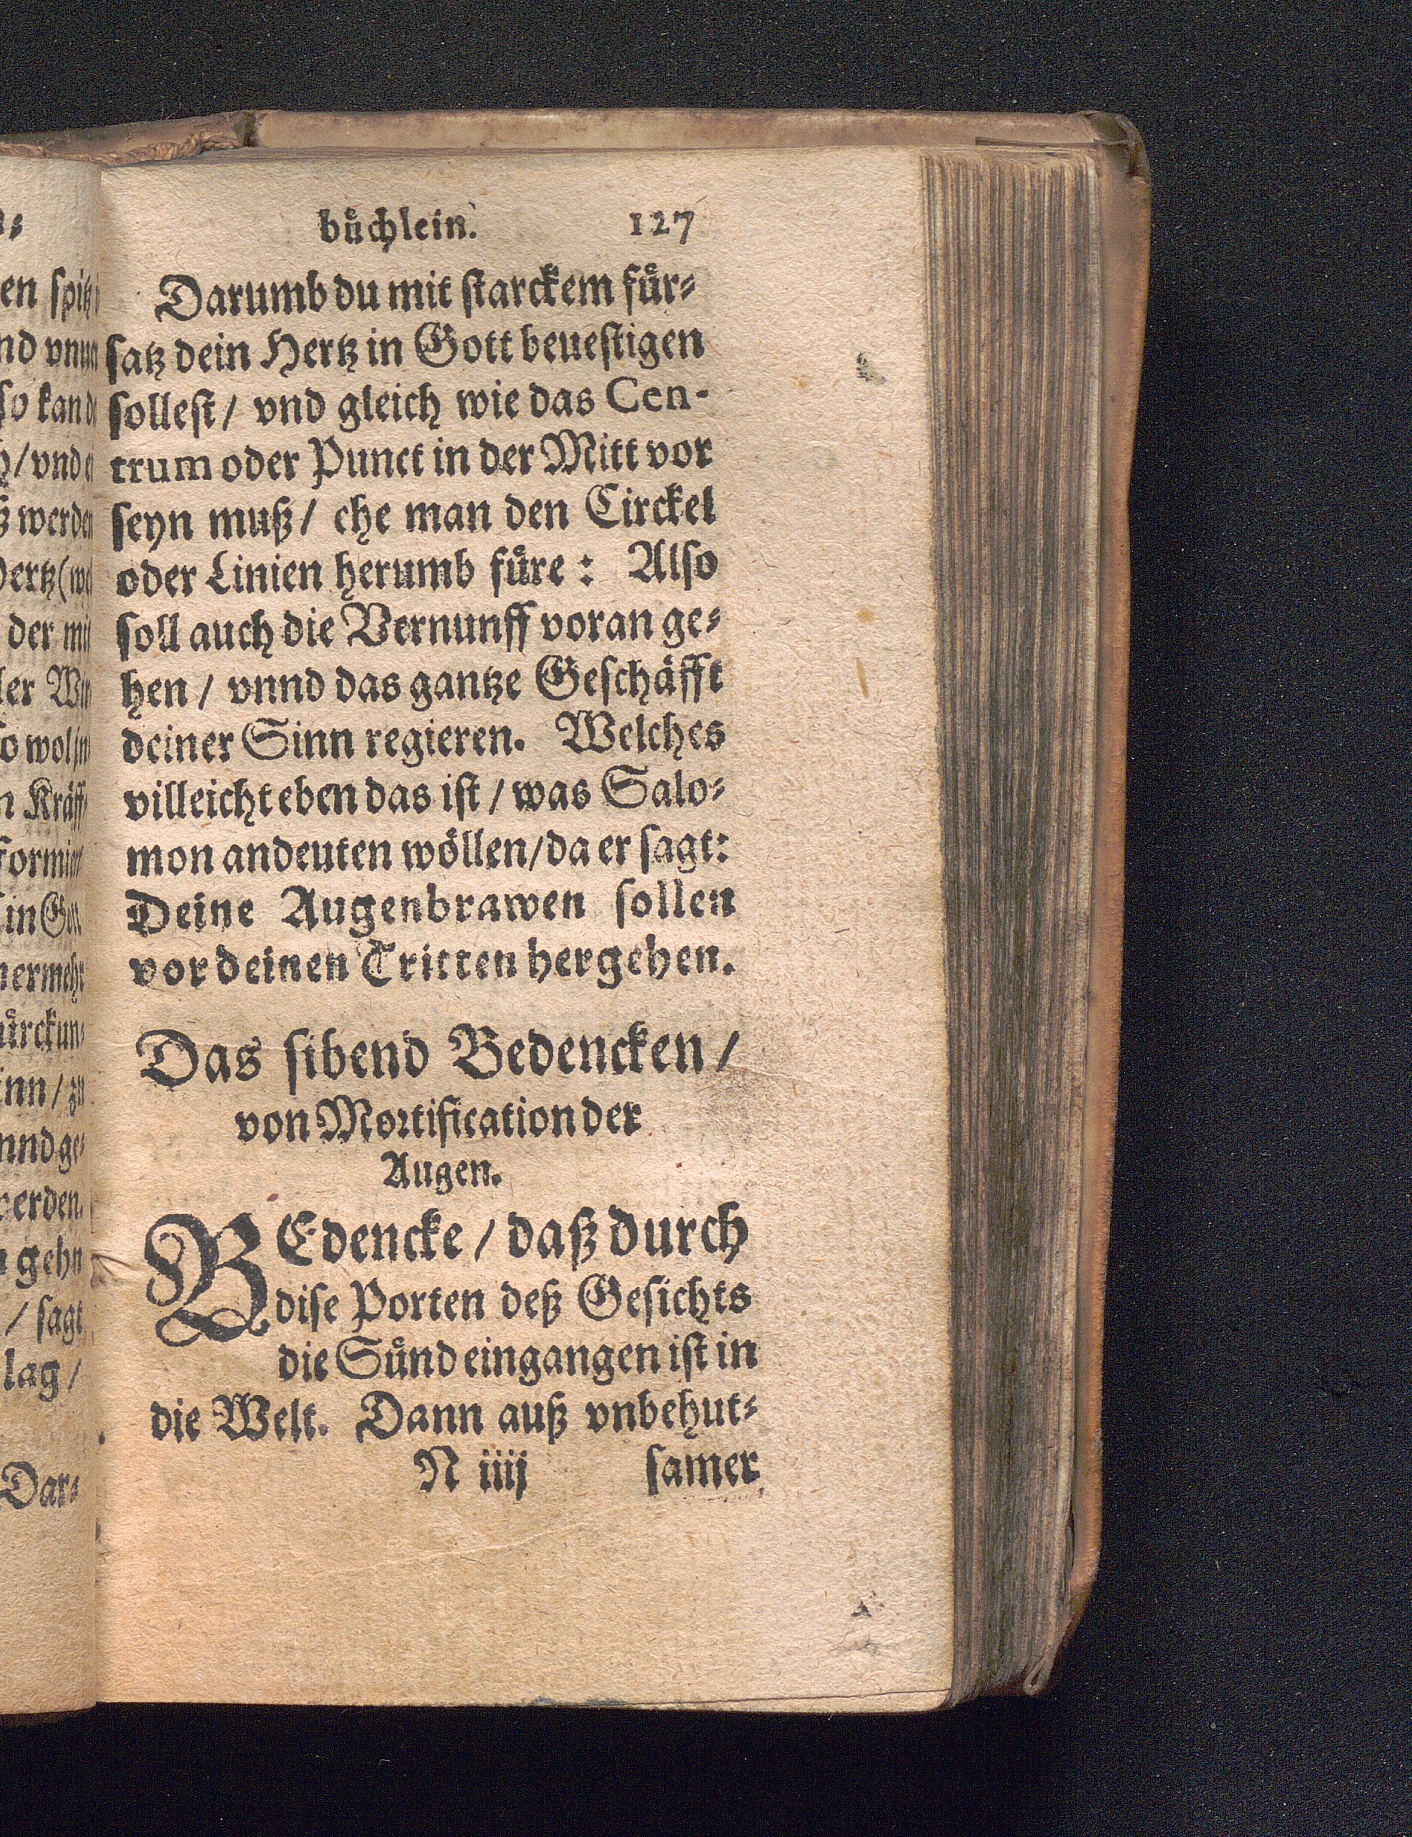 buͤchlein. 127
Darumb du mit ſtarckem fuͤr⸗
ſatz dein Hertz in Gott beueſtigen
ſolleſt / vnd gleich wie das Cen-
trum oder Punct in der Mitt vor
ſeyn muß / ehe man den Circkel
oder Linien herumb fuͤre : Alſo
ſoll auch die Vernunff voran ge⸗
hen / vnnd das gantze Geſchaͤfft
deiner Sinn regieren. Welches
villeicht eben das iſt / was Salo⸗
mon andeuten woͤllen / da er ſagt:
Deine Augenbrawen ſollen
vor deinen Tritten hergehen.
Das ſibend Bedencken /
von Mortification der
Augen.
BEdencke / daß durch
diſe Porten deß Geſichts
die Suͤnd eingangen iſt in
die Welt. Dann auß vnbehut⸗
N iiij ſamer
werden
der
ſagt
lag /
Dar⸗